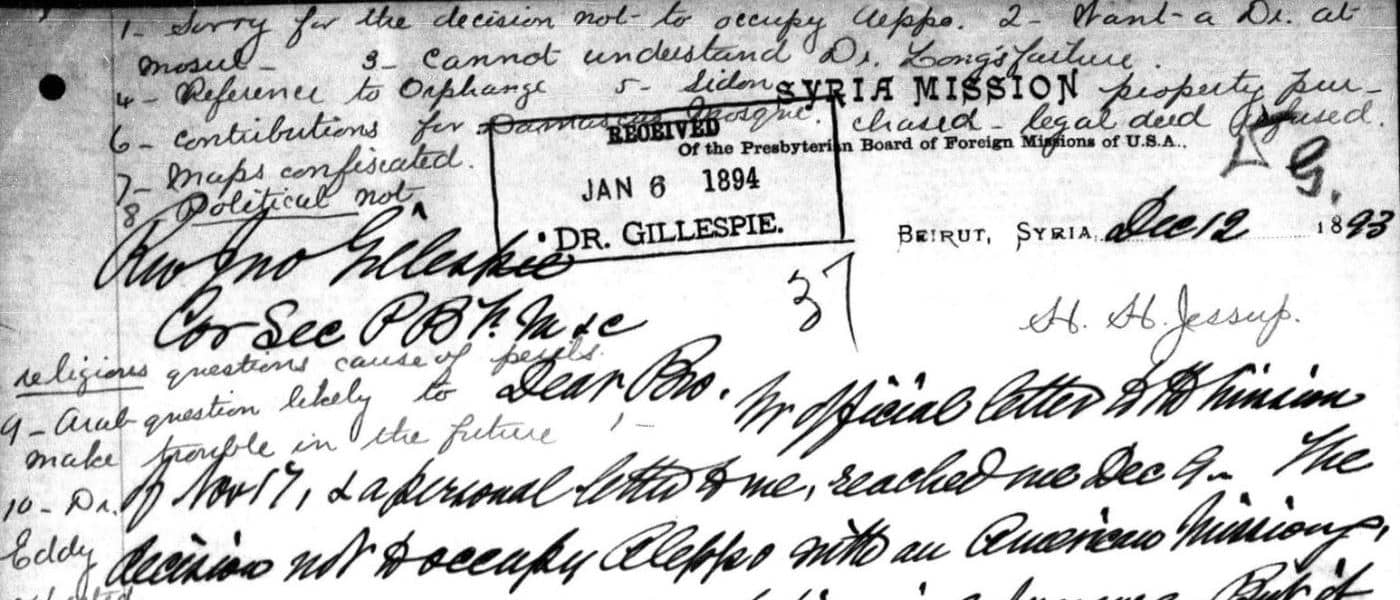 1- Sorry for the decision not to occupy Aleppo. 2- Want a Dr. at
Mosul - 3- Cannot understand Dr. Long's failure.
4- Reference to Orphange 5- Sidon property pur-
SYRIA MISSION
6- Contributions for Damascus Mosque. chased - legal deed refused.
RECEIVED
Of the Presbyterian Board of Foreign Missions of U.S.A.,
7- Maps confiscated.
JAN 6 1894
8- Political not
G.
DR. GILLESPIE.
BEIRUT, SYRIA, Dec 12 1893
Rev Jno Gillespie
37
Cor Sec P B F. M &c
H. H. Jessup.
religious questions cause of perils.
Dear Bro.
9- Arab question likely to
Yr official letter to the Mission
make trouble in the future
of Nov 17, & a personal letter to me, reached me Dec 9. The
10- Dr.
Eddy
decision not to occupy Aleppo with an American Missiony,
But if